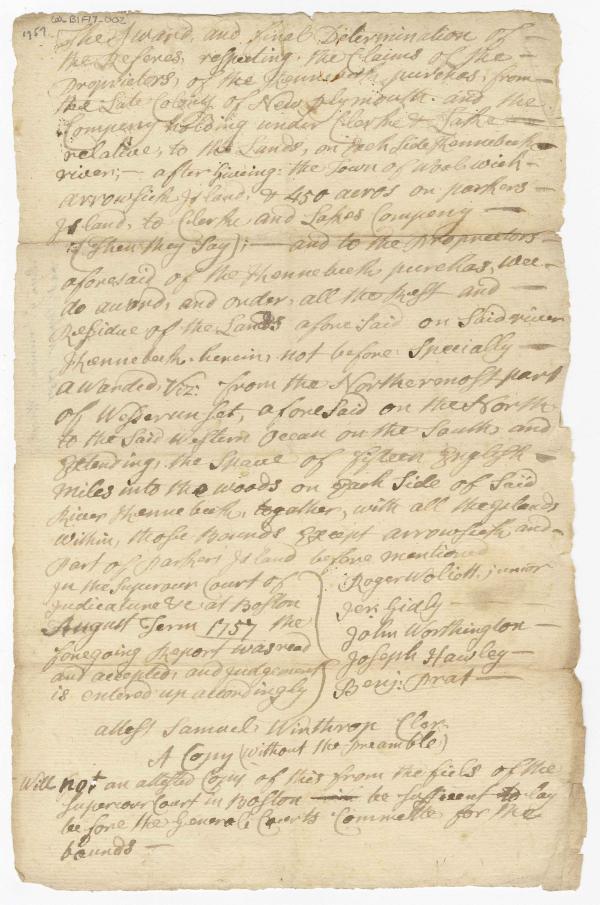 1757
The Award, and final Determination of
the Referes, respecting, the Claims of the
Proprietors, of the Kennebeck purchas, from
the Late Colony of New plymouth. and the
Company holding under Clerke & Lake
relative, to the Lands, on Each Side Kennebeck
river; — after Giveing: the Town of Woolwich
arrowsick Island, & 450 acros on parkers
Island, to Clerke and Lakes Company —
(Then they Say); — and to the Proprietors
aforesaid of the Kennebeck purchas, wee
do award, and order, all the Rest and —
Residue of the Lands afore Said on Said river
Kennebeck. herein, not before Specially —
awarded, Viz: from the Northermost part
of Wesserunset, aforeSaid on the North
to the Said western Ocean on the South, and
Extending, the Space of fifteen English
miles into the woods on Each Side of Said
River Kennebeck, together, with all the Islands
within, those Bounds Except arrowsick and
Part of Parkers Island before mentioned
In the Superour Court of
Judicature &c at Boston
August Term 1757 the
foregoing Report was read
and accepted, and Judgement
is entered up accordingly
Roger Wolcott, junior
Jer: Gidly
John Worthington
Joseph Hawley
Benj: Prat
attest Samuel Winthrop Cler
A Copy (without the preamble)
Will not an attested Copy of this from the fiels of the
Superour Court in Boston be Suffcent to Lay
before the General Courts Committe for the
bounds —